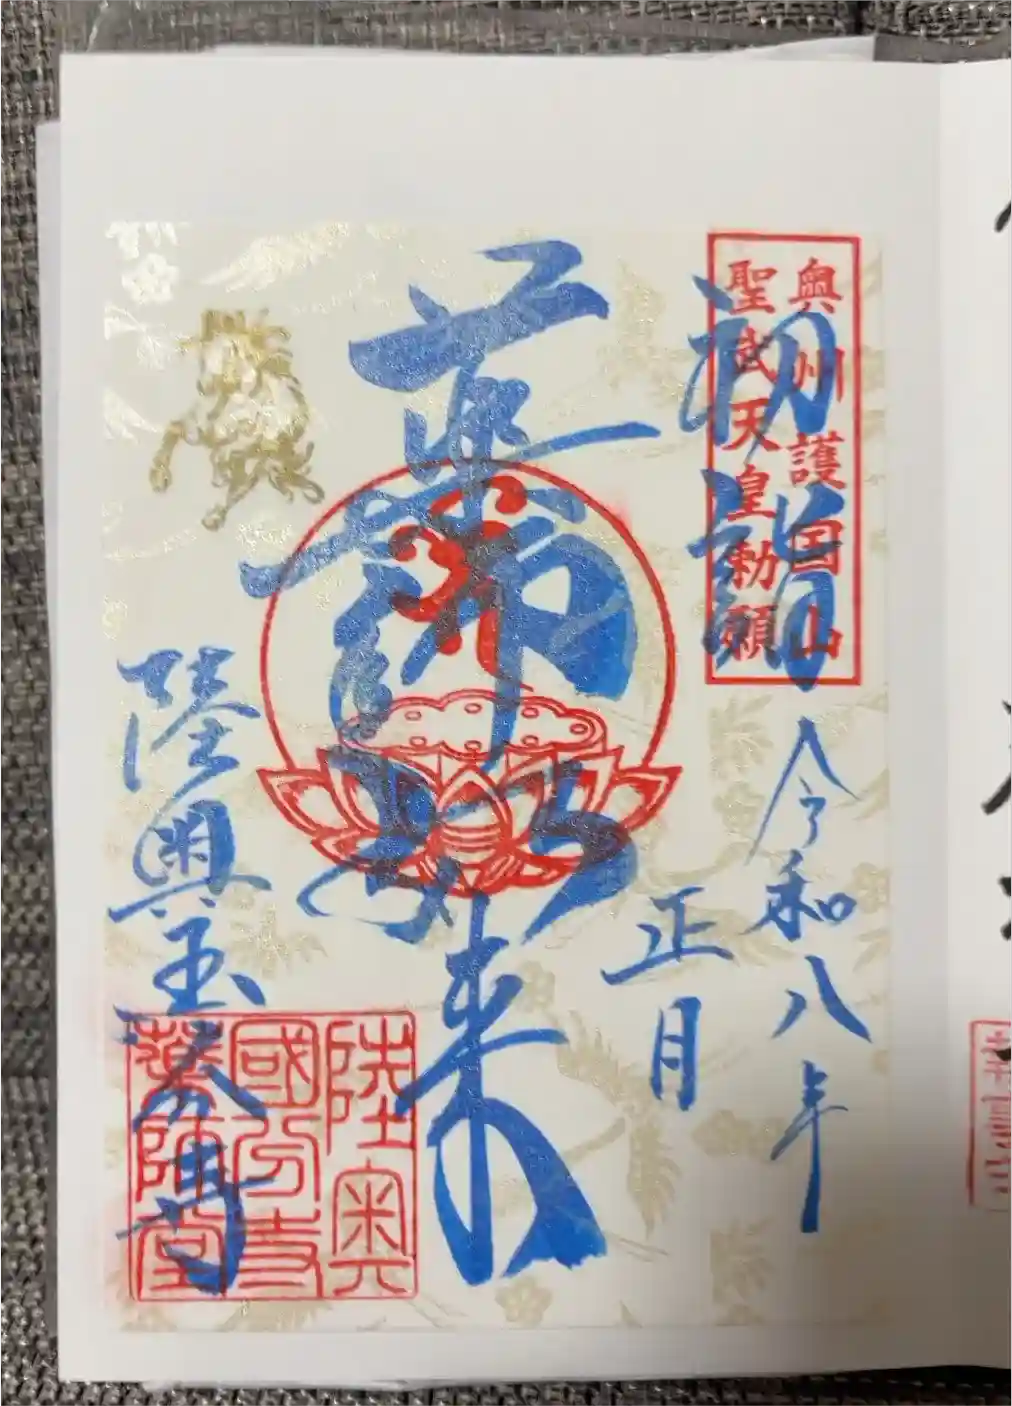 奥州護国山
聖武天皇勅願
初詣
令和八年
正月
薬師如来
陸奥国分寺
陸奥
國分寺
薬師堂